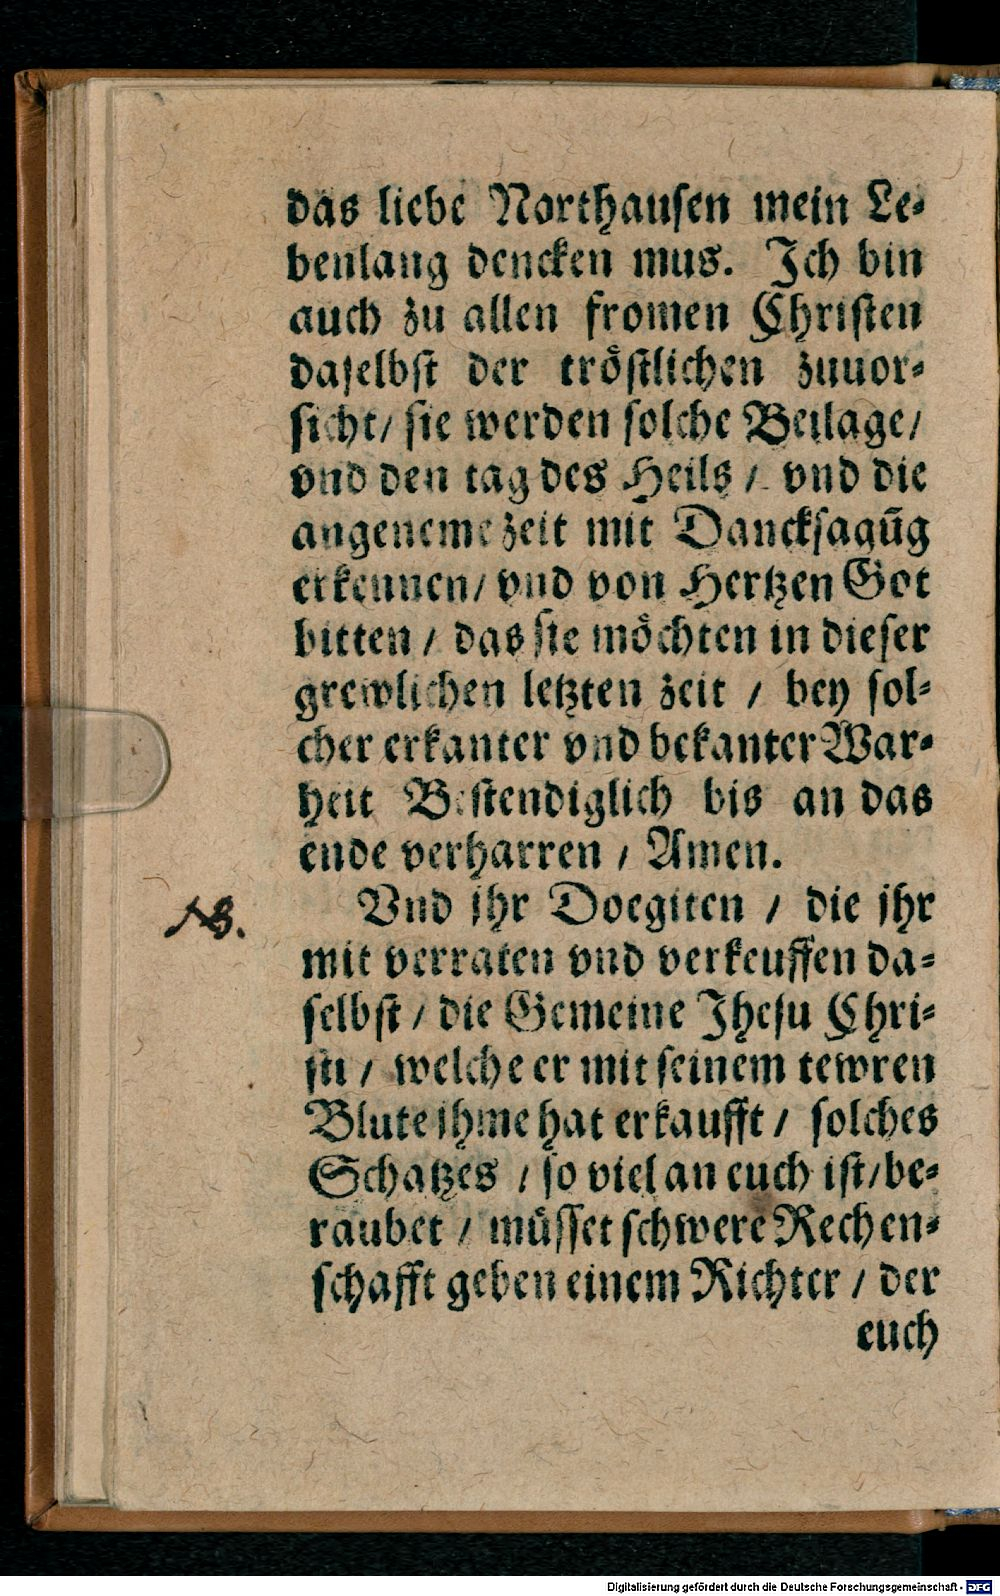 das liebe Northausen mein Le⸗
benlang dencken mus. Ich bin
auch zu allen fromen Christen
daselbst der tröstlichen zuuor⸗
sicht/ sie werden solche Beilage/
vnd den tag des Heils / vnd die
angeneme zeit mit Dancksagūg
erkennen/ vnd von Hertzen Got
bitten / das sie möchten in dieser
grewlichen letzten zeit / bey sol⸗
cher erkanter vnd bekanter War⸗
heit Bestendiglich bis an das
ende verharren / Amen.
NB.
Vnd ihr Doegiten / die ihr
mit verraten vnd verkeuffen da⸗
selbst / die Gemeine Jhesu Chri⸗
sti / welche er mit seinem tewren
Blute ihme hat erkaufft / solches
Schatzes / so viel an euch ist/ be⸗
raubet / müsset schwere Rechen⸗
schafft geben einem Richter / der
euch
Digitalisierung gefördert durch die Deutsche Forschungsgemeinschaft - DFG